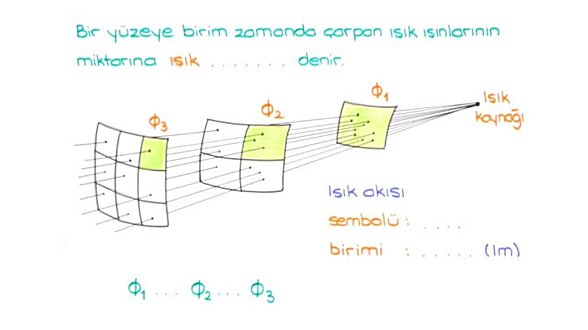 Bir yüzeye birim zamanda çarpan ışık ışınlarının
miktarına ışık ........ denir.
Φ1
Φ2
Φ3
Işık
kaynağı
Işık akısı
sembolü : ....
birimi : ...... (lm)
Φ1 ... Φ2 ... Φ3